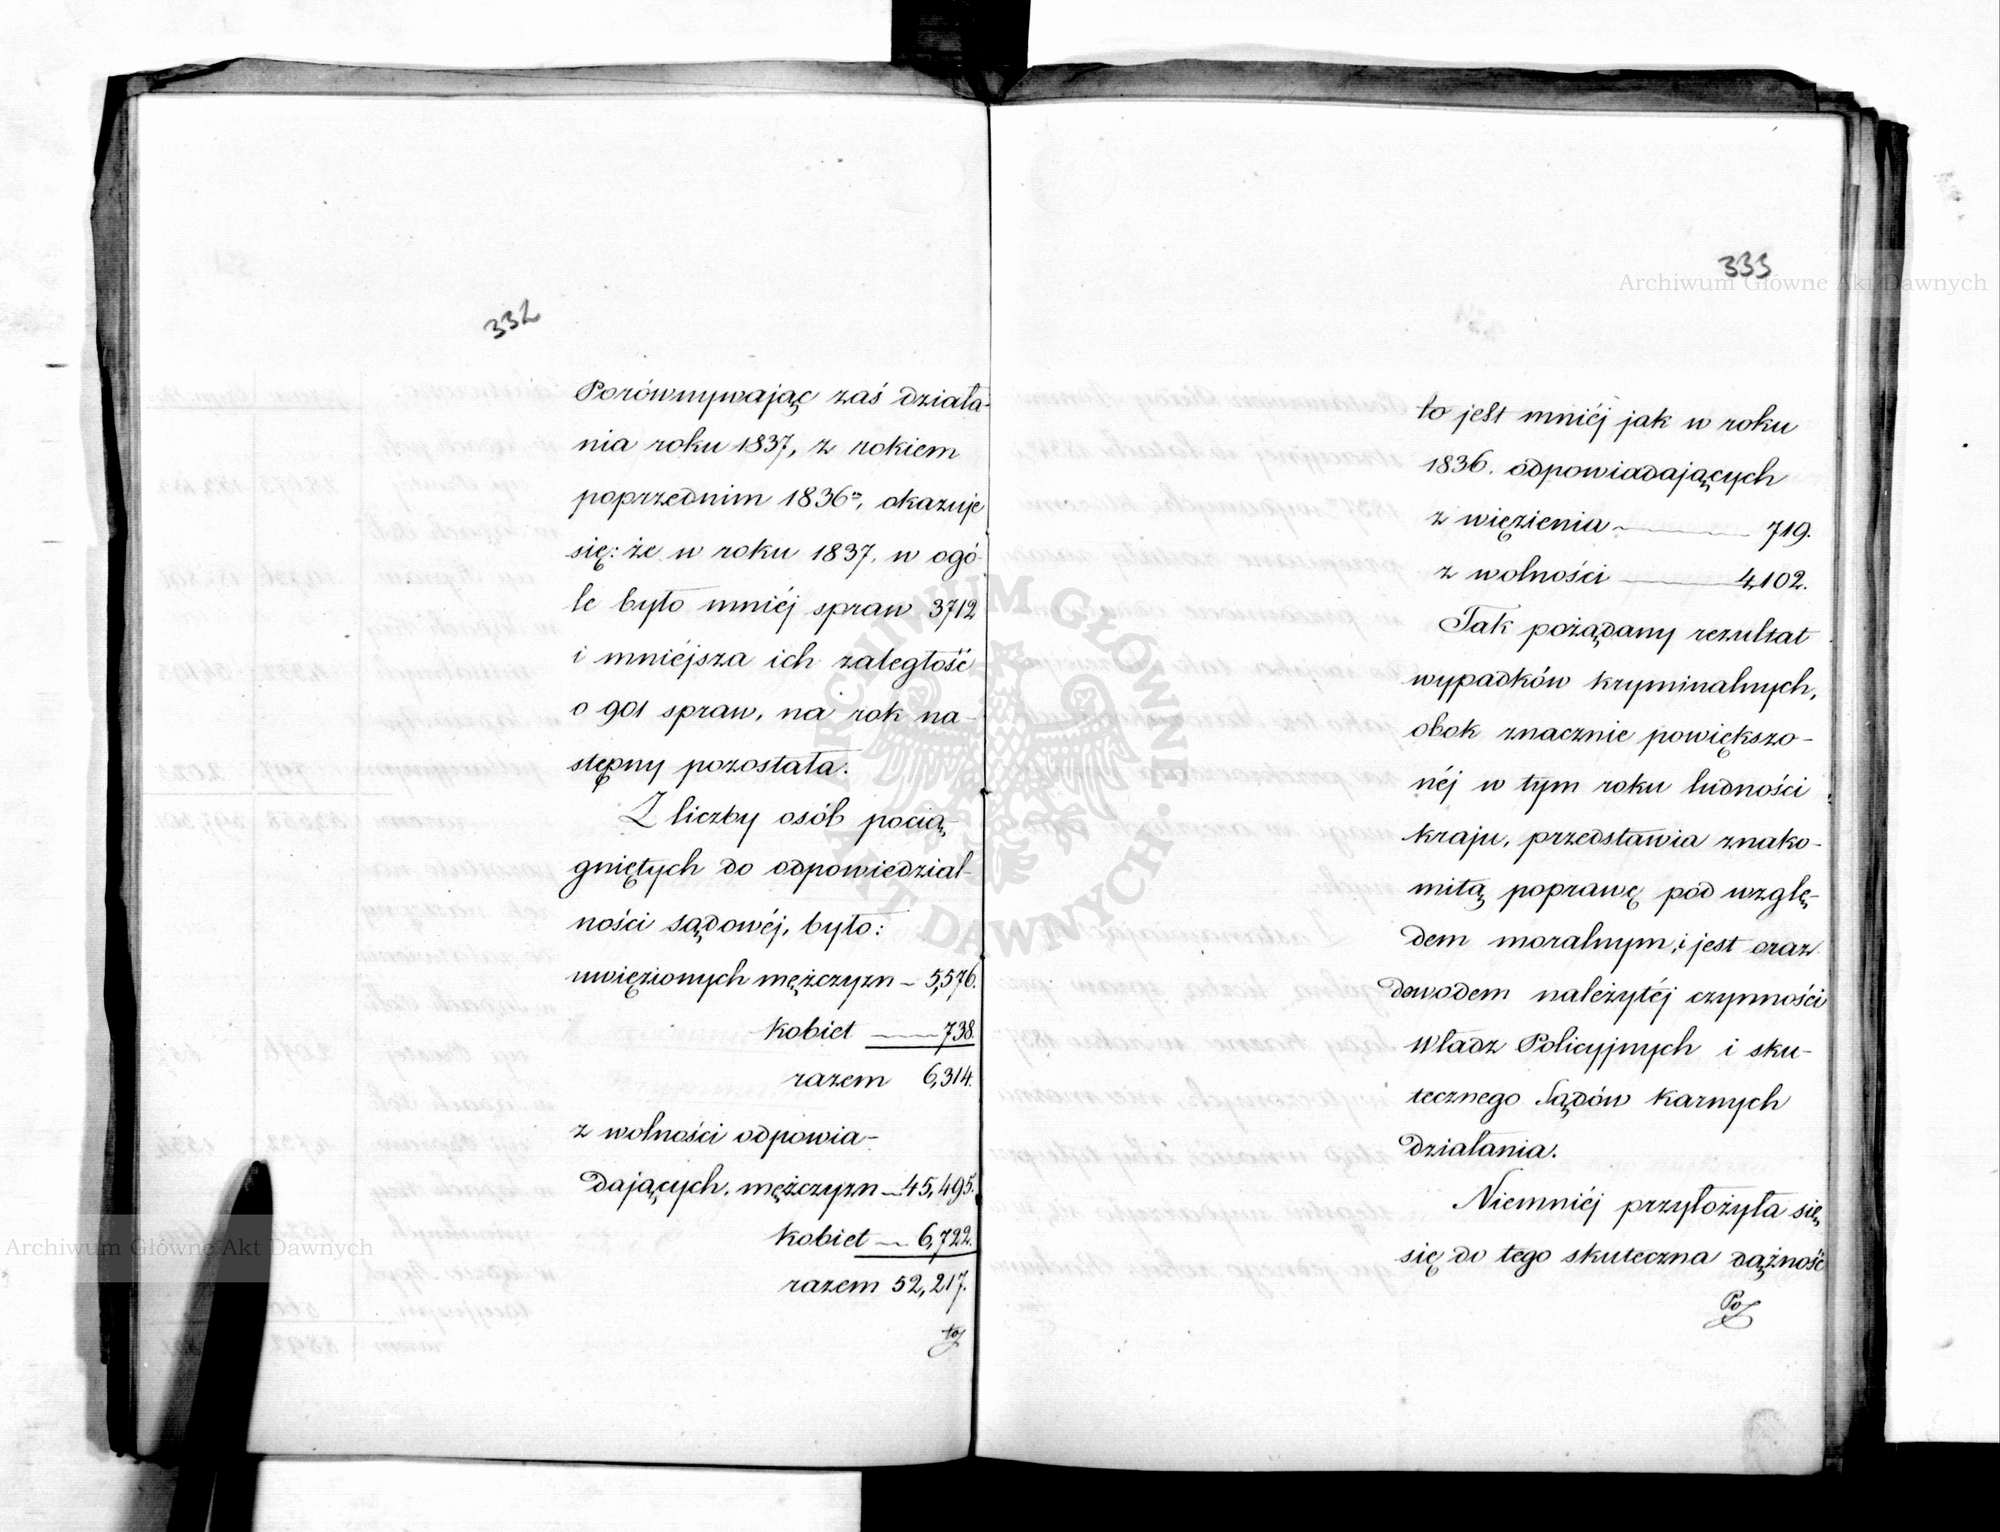 332
Porównywając zaś działa-
nia roku 1837, z rokiem
poprzednim 1836m, okazuje
się: że w roku 1837. w ogó-
le było mniéj spraw 3712
i mniéjsza ich zaległość
o 901 spraw, na rok na-
stępny pozostała.
Z liczby osób pocią-
gniętych do odpowiedzial-
ności sądowéj, było:
uwięzionych mężczyzn — 5,576.
kobiet — 738.
razem 6,314.
z wolności odpowia-
dających, mężczyzn — 45,495.
kobiet — 6,722.
razem 52,217.
to
333
to jest mniéj jak w roku
1836. odpowiadających
z więzienia — 719.
z wolności — 4,102.
Tak pożądany rezultat
wypadków kryminalnych,
obok znacznie powiększo-
néj w tym roku ludności
kraju, przedstawia znako-
mitą poprawę pod wzglę-
dem moralnym, i jest oraz
dowodem należytéj czynności
władz Policyjnych i sku-
tecznego Sądów karnych
działania.
Niemniéj przyłożyła się
się do tego skuteczna dążność
Po
Archiwum Główne Akt Dawnych
Archiwum Główne Akt Dawnych
ARCHIWUM GŁÓWNE AKT DAWNYCH